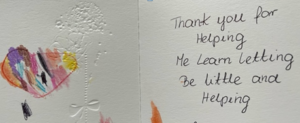 Thank you for
Helping
Me Learn Letting
Be little and
Helping